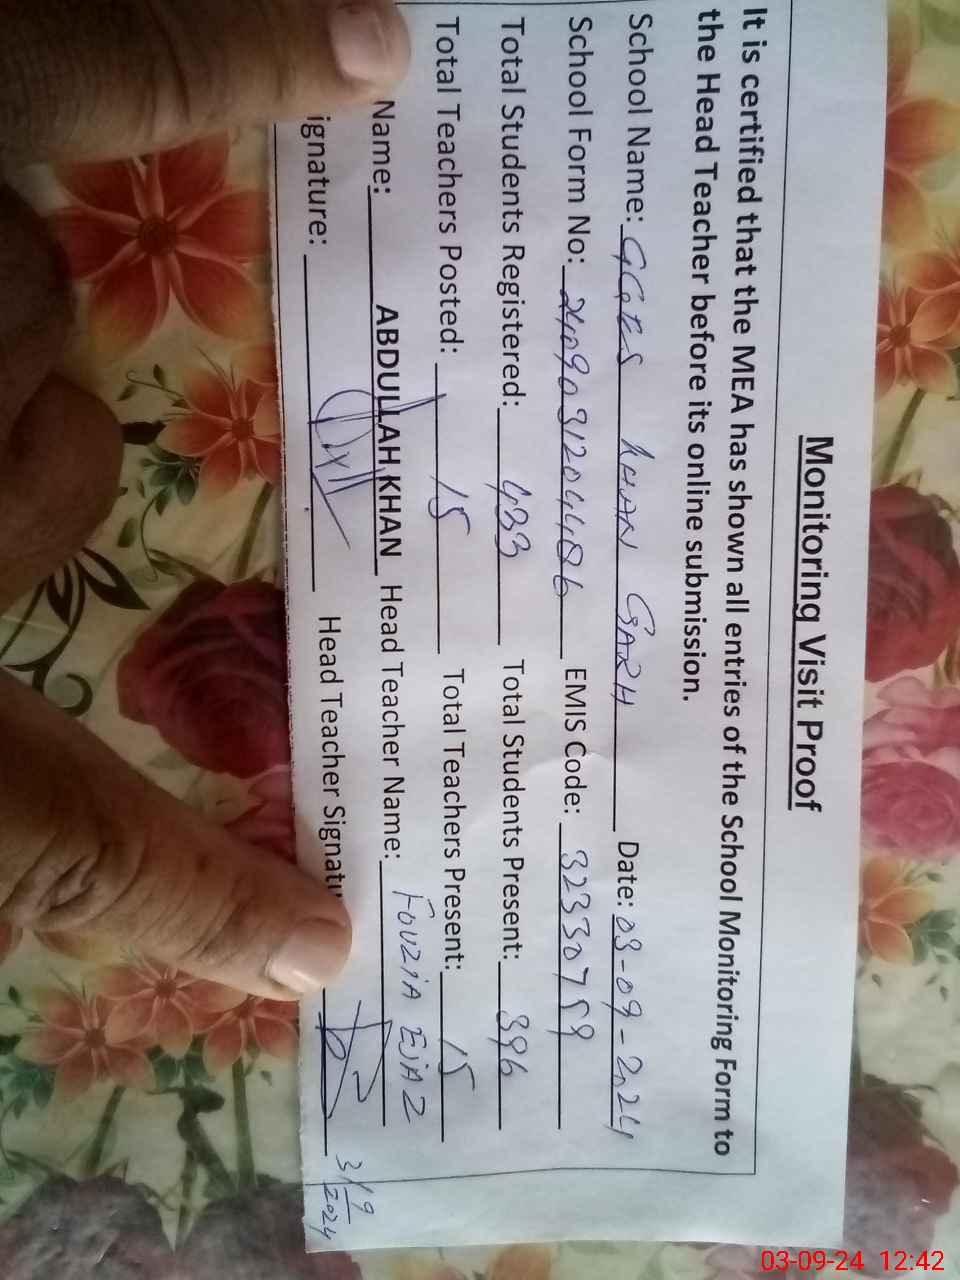 Monitoring Visit Proof
It is certified that the MEA has shown all entries of the School Monitoring Form to
the Head Teacher before its online submission.
School Name: GGES KHAN GARH Date: 03-09-2024
School Form No: EMIS Code: 32330759
Total Students Registered: 433 Total Students Present: 396
Total Teachers Posted: 15 Total Teachers Present: 15
Name: ABDULLAH KHAN Head Teacher Name: FOUZIA EJAZ
ignature: Head Teacher Signatu
3/9
2024
03-09-24 12:42